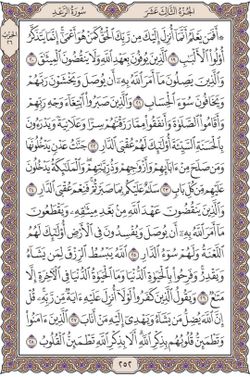 الجزء الثالث عشر
سورة الرعد
الحزب ٢٦
۞ أَفَمَن يَعْلَمُ أَنَّمَآ أُنزِلَ إِلَيْكَ مِن رَّبِّكَ ٱلْحَقُّ كَمَنْ هُوَ أَعْمَىٰٓ إِنَّمَا يَتَذَكَّرُ
أُو۟لُوا۟ ٱلْأَلْبَٰبِ ١٩ ٱلَّذِينَ يُوفُونَ بِعَهْدِ ٱللَّهِ وَلَا يَنقُضُونَ ٱلْمِيثَٰقَ ٢٠
وَٱلَّذِينَ يَصِلُونَ مَآ أَمَرَ ٱللَّهُ بِهِۦٓ أَن يُوصَلَ وَيَخْشَوْنَ رَبَّهُمْ
وَيَخَافُونَ سُوٓءَ ٱلْحِسَابِ ٢١ وَٱلَّذِينَ صَبَرُوا۟ ٱبْتِغَآءَ وَجْهِ رَبِّهِمْ
وَأَقَامُوا۟ ٱلصَّلَوٰةَ وَأَنفَقُوا۟ مِمَّا رَزَقْنَٰهُمْ سِرًّا وَعَلَانِيَةً وَيَدْرَءُونَ
بِٱلْحَسَنَةِ ٱلسَّيِّئَةَ أُو۟لَٰٓئِكَ لَهُمْ عُقْبَى ٱلدَّارِ ٢٢ جَنَّٰتُ عَدْنٍ يَدْخُلُونَهَا
وَمَن صَلَحَ مِنْ ءَابَآئِهِمْ وَأَزْوَٰجِهِمْ وَذُرِّيَّٰتِهِمْ وَٱلْمَلَٰٓئِكَةُ يَدْخُلُونَ
عَلَيْهِم مِّن كُلِّ بَابٍ ٢٣ سَلَٰمٌ عَلَيْكُم بِمَا صَبَرْتُمْ فَنِعْمَ عُقْبَى ٱلدَّارِ
٢٤ وَٱلَّذِينَ يَنقُضُونَ عَهْدَ ٱللَّهِ مِنۢ بَعْدِ مِيثَٰقِهِۦ وَيَقْطَعُونَ
مَآ أَمَرَ ٱللَّهُ بِهِۦٓ أَن يُوصَلَ وَيُفْسِدُونَ فِى ٱلْأَرْضِ أُو۟لَٰٓئِكَ لَهُمُ
ٱللَّعْنَةُ وَلَهُمْ سُوٓءُ ٱلدَّارِ ٢٥ ٱللَّهُ يَبْسُطُ ٱلرِّزْقَ لِمَن يَشَآءُ
وَيَقْدِرُ وَفَرِحُوا۟ بِٱلْحَيَوٰةِ ٱلدُّنْيَا وَمَا ٱلْحَيَوٰةُ ٱلدُّنْيَا فِى ٱلْءَاخِرَةِ إِلَّا
مَتَٰعٌ ٢٦ وَيَقُولُ ٱلَّذِينَ كَفَرُوا۟ لَوْلَآ أُنزِلَ عَلَيْهِ ءَايَةٌ مِّن رَّبِّهِۦ قُلْ
إِنَّ ٱللَّهَ يُضِلُّ مَن يَشَآءُ وَيَهْدِىٓ إِلَيْهِ مَنْ أَنَابَ ٢٧ ٱلَّذِينَ ءَامَنُوا۟
وَتَطْمَئِنُّ قُلُوبُهُم بِذِكْرِ ٱللَّهِ أَلَا بِذِكْرِ ٱللَّهِ تَطْمَئِنُّ ٱلْقُلُوبُ ٢٨
٢٥٢